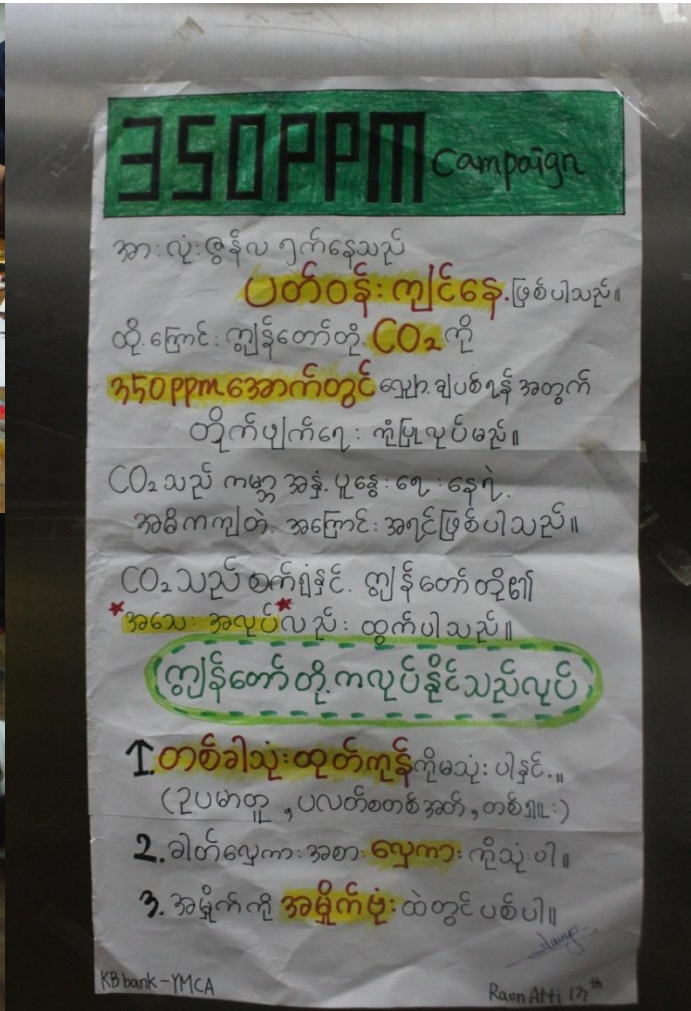 350PPM Campaign
အားလုံးဇွန်လ ၅ ရက်နေ့သည်
ပတ်ဝန်းကျင်နေ့ ဖြစ်ပါသည်။
ထို့ကြောင့် ကျွန်တော်တို့ CO₂ ကို
350ppm အောက်တွင် လျှော့ချပစ်ရန် အတွက်
တိုက်ဖျက်ရေး ကိုပြုလုပ်မည်။
CO₂ သည် ကမ္ဘာ့အနှံ့ ပူနွေးရေးနေရဲ့
အဓိကကျတဲ့ အကြောင်းအရင်ဖြစ်ပါသည်။
CO₂ သည် စက်ရုံနှင့် ကျွန်တော်တို့၏
*အသေးအလုပ်*လည်း ထွက်ပါသည်။
ကျွန်တော်တို့ကလုပ်နိုင်သည်လုပ်
1. တစ်ခါသုံးထုတ်ကုန်ကိုမသုံးပါနှင့်။
(ဥပမာတူ, ပလတ်စတစ်အိတ်, တစ်ရှူး)
2. ဓါတ်လှေကားအစား လှေကား ကိုသုံးပါ။
3. အမှိုက်ကို အမှိုက်ဗုံးထဲတွင်ပစ်ပါ။
KB bank-YMCA
Raon Atti 13th